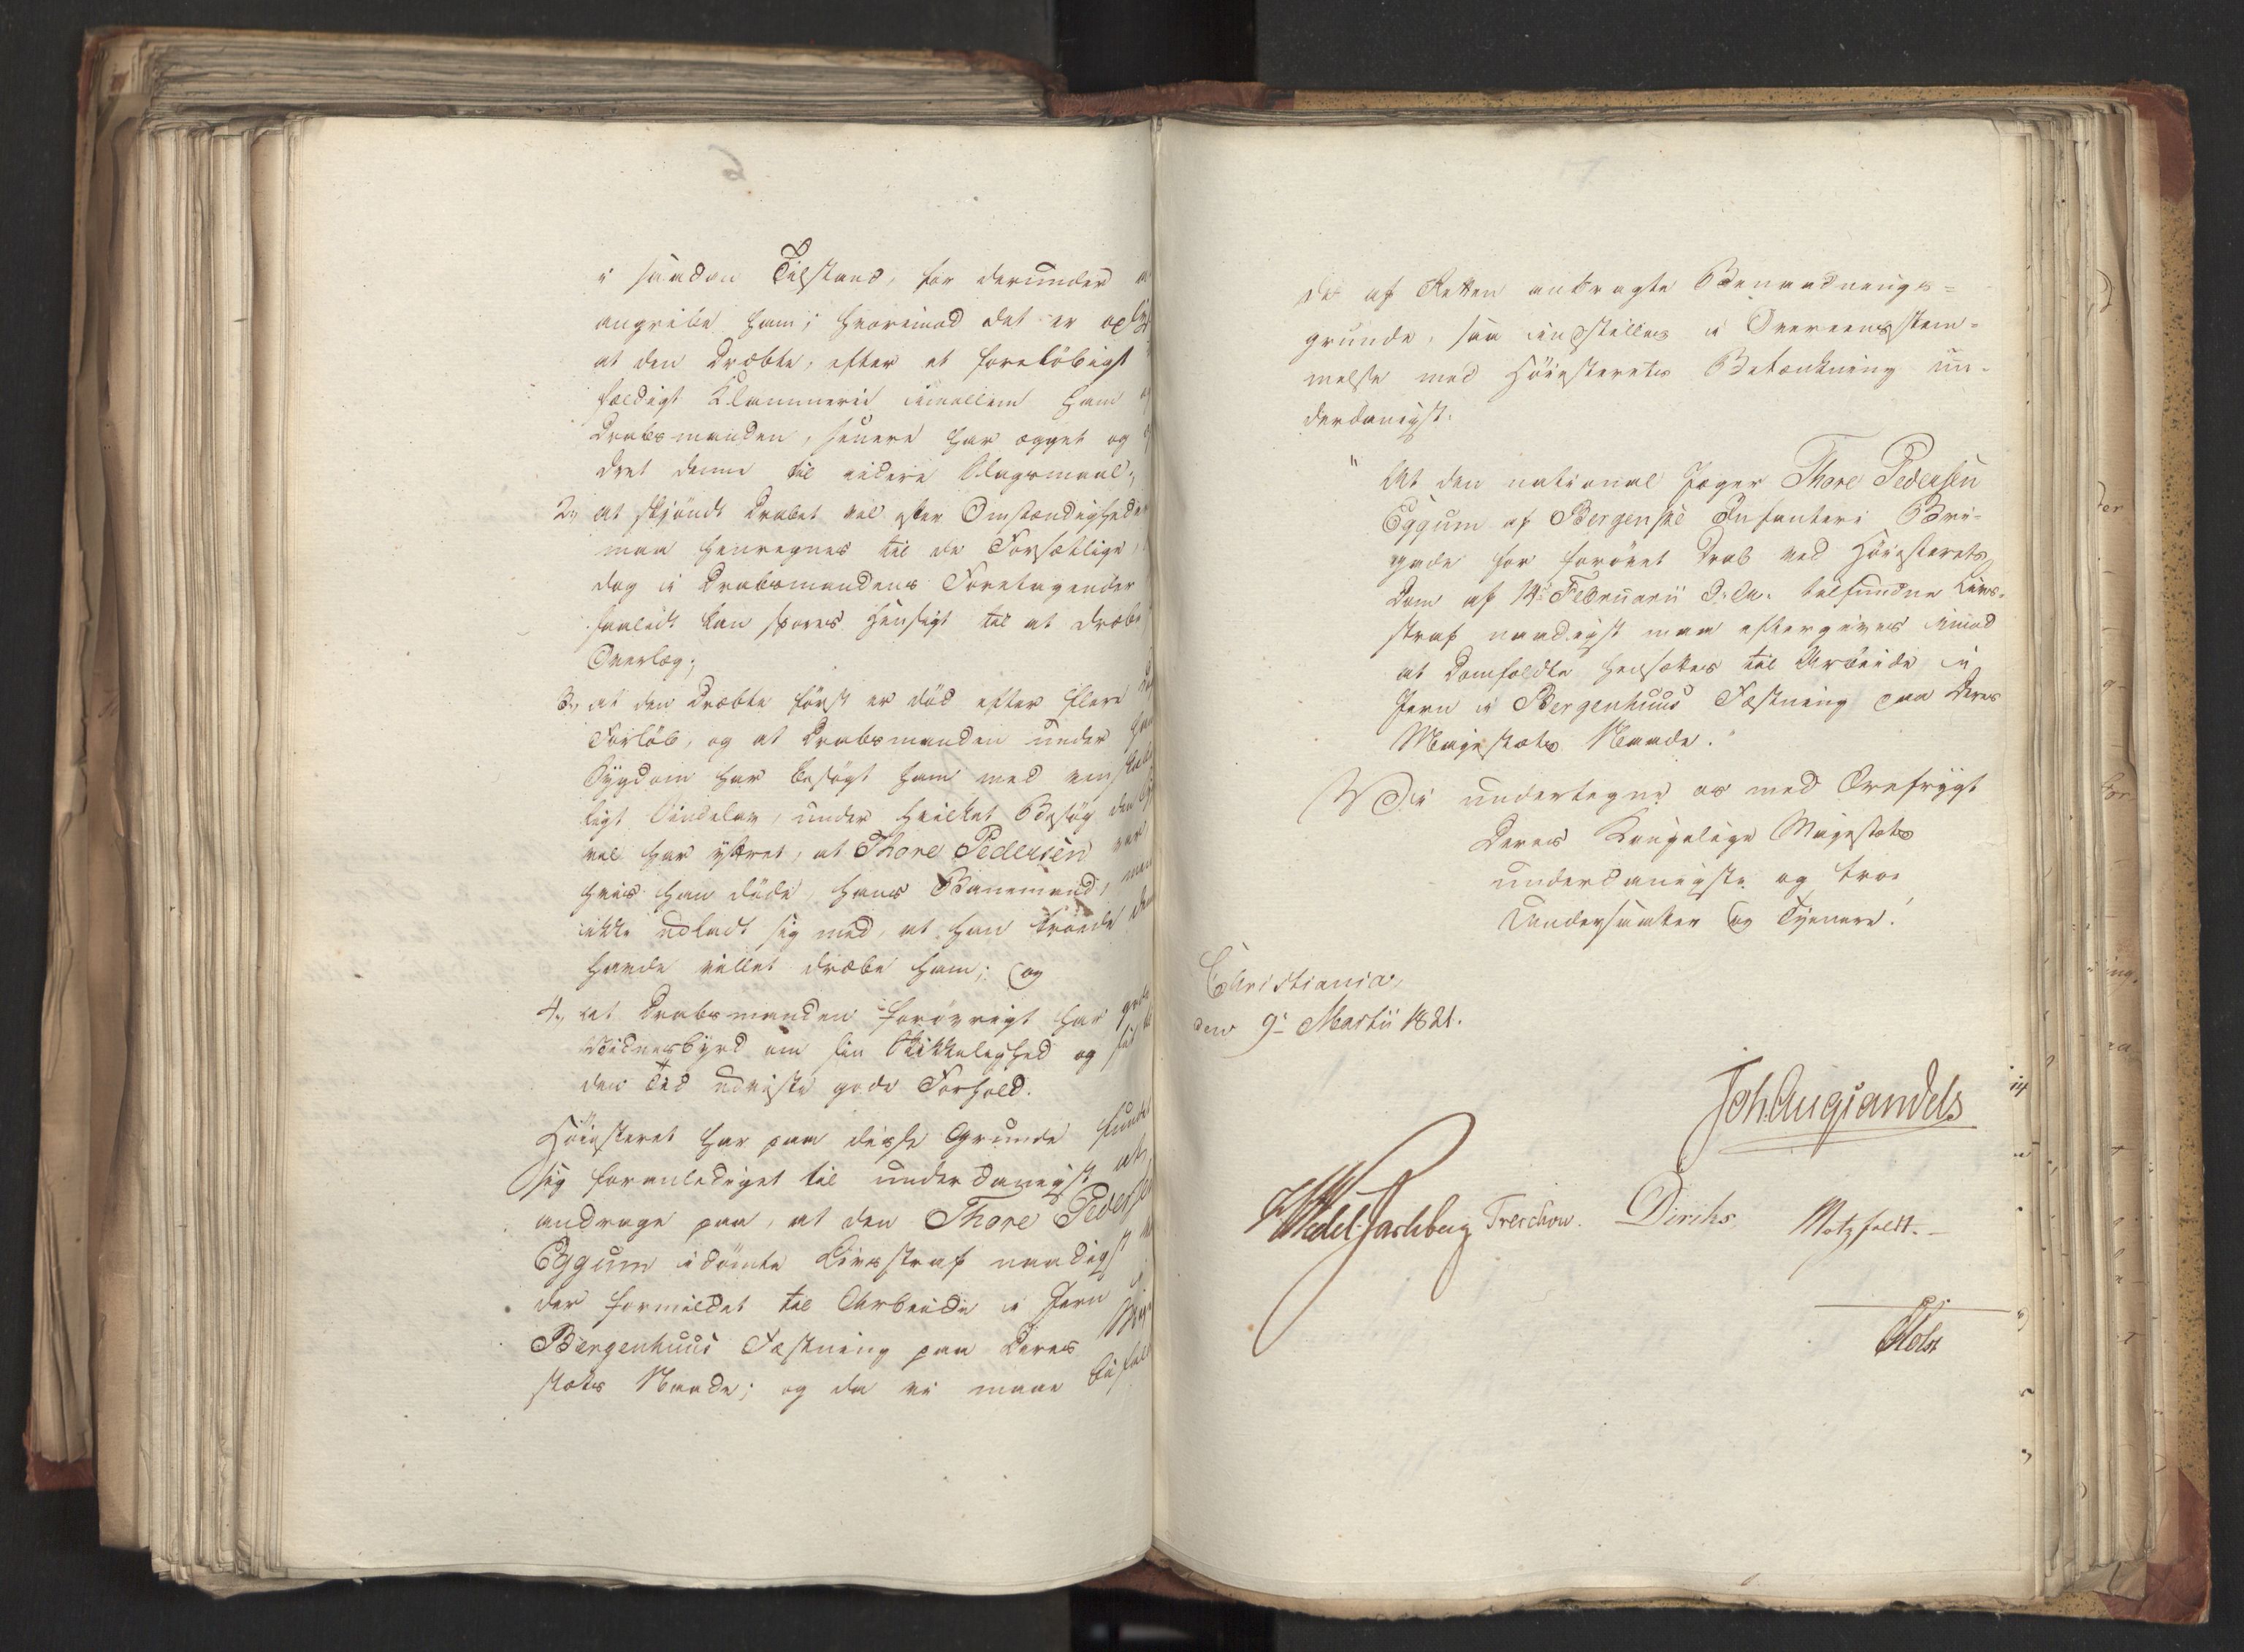 i saadan Tilstand, for derunder a
angribe ham; hvorimod det er oply
at den Dræbte, efter et foreløbigt
fældigt Klammerie imellem ham og
Drabsmanden, senere har ægget og
dret denne til videre Slagsmaal;
2, at skjøndt Drabet vel efter Omstændigheder
maa henregnes til de Forsætlige,
dog i Drabsmandens Foretagender
saalidt kan spores Hensigt til at dræbe
Overlæg;
3, at den Dræbte først er død efter flere
Forløb, og at Drabsmanden under
Sygdom har besøgt ham med venskabe
ligt Sindelav, under hvilket Besøg den
vel har yttret, at Thore Pedersen var
hvis han døde, hans Banemand, men
ikke udladt sig med, at han troede den
havde villet dræbe ham; og
4, at Drabsmanden forøvrigt har gode
Vidnesbyrd om sin Skikkelighed og
den Tid udviste gode Forhold.
Høiesteret har paa disse Grunde fundet
sig foranlediget til underdanigst at
andrage paa, at den Thore Pedersen
Eggum idømte Livsstraf naadigst
der formildet til Arbeide i Jern i
Bergenhuus Fæstning paa Deres Maje
stæts Naade; og da vi maae bifald
de af Retten anbragte Benaadnings=
grunde, saa indstilles i Overeensstem=
melse med Høiesterets Betænkning un=
derdanigst:
"At den national Jæger Thore Pedersen
Eggum af Bergenske Infanteri Bri=
gade for forøvet Drab ved Høiesterets
Dom af 14de Februarii d: A: tilfundne Livs=
straf naadigst maa eftergives imod
at Domfældte hensættes til Arbeide i
Jern i Bergenhuus Fæstning paa Deres
Majestæts Naade."
Vi undertegne os med Ærefrygt
Deres Kongelige Majestæts
underdanigste og troe
Undersaatter og Tjenere!
Christiania,
den 9de Martii 1821.
Joh. Aug. Sandels
H Wedel Jarlsberg Treschow. Diriks Motzfeldt.
Holst